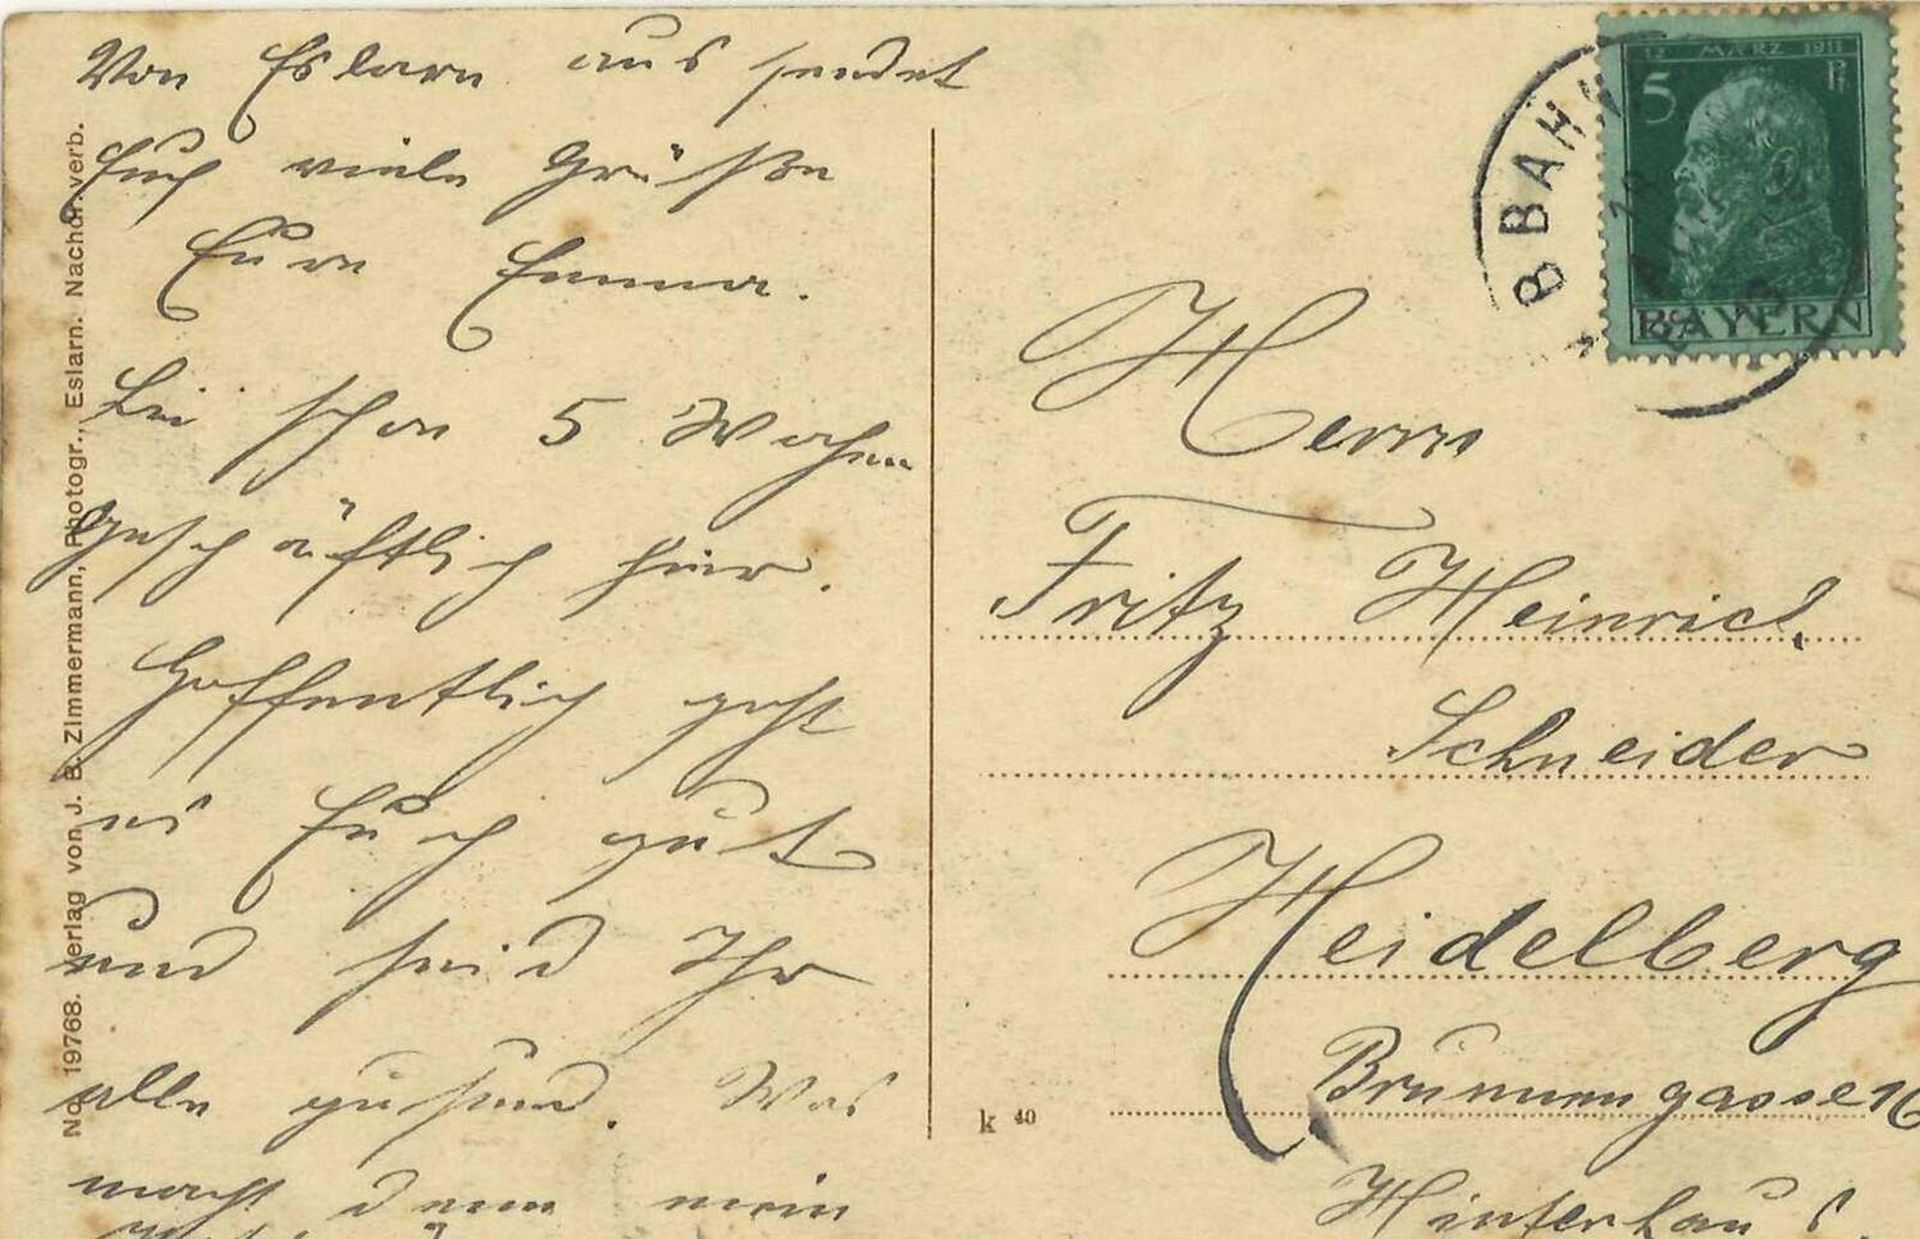 Von Eslarn aus sendet
Euch viele Grüße
Eure Emma.
Bin schon 5 Wochen
geschäftlich hier.
Hoffentlich geht
es Euch gut
und seid Ihr
alle gesund. Was
macht denn mein
No. 19768. Verlag von J. B. Zimmermann, Photogr., Eslarn. Nachdr. verb.
k 40
12 MÄRZ 1911
5 Pf
BAYERN
Herrn
Fritz Heinrich
Schneider
Heidelberg
Brunnengasse 16
Hinterhaus.